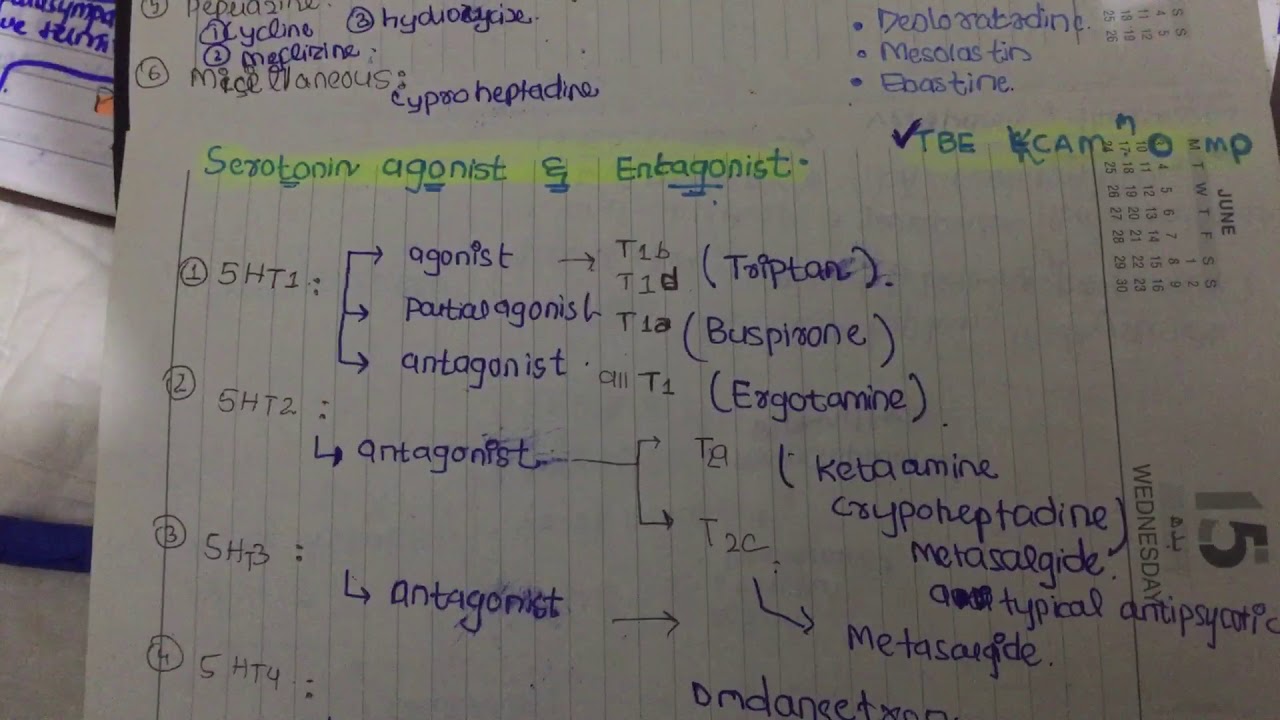 ① Cycline ③ hydroxyzine.
② meclizine:
⑥ Miscellaneous:
cyproheptadine
• Mesolastin
• Ebastine.
✓TBE KCAM m O mp
Serotonin agonist & Entagonist.
① 5HT1:
agonist → T1b
T1d (Triptan).
partial agonist T1a (Buspirone)
antagonist. all T1 (Ergotamine)
② 5HT2:
↳ antagonist
T2a (Ketaamine
Crypoheptadine)
T2C:
Metasalgide.
atypical antipsycotic
Metasalgide.
③ 5HT3:
↳ antagonist →
④ 5HT4:
Omdansetron
JUNE
M 4 11 18 25
T 5 12 19 26
W 6 13 20 27
T 7 14 21 28
F 1 8 15 22 29
S 2 9 16 23 30
S 10 17 24
15
WEDNESDAY